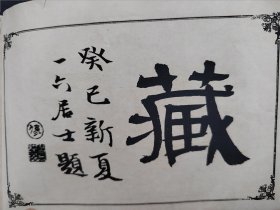 藏
癸巳新夏
一六居士題